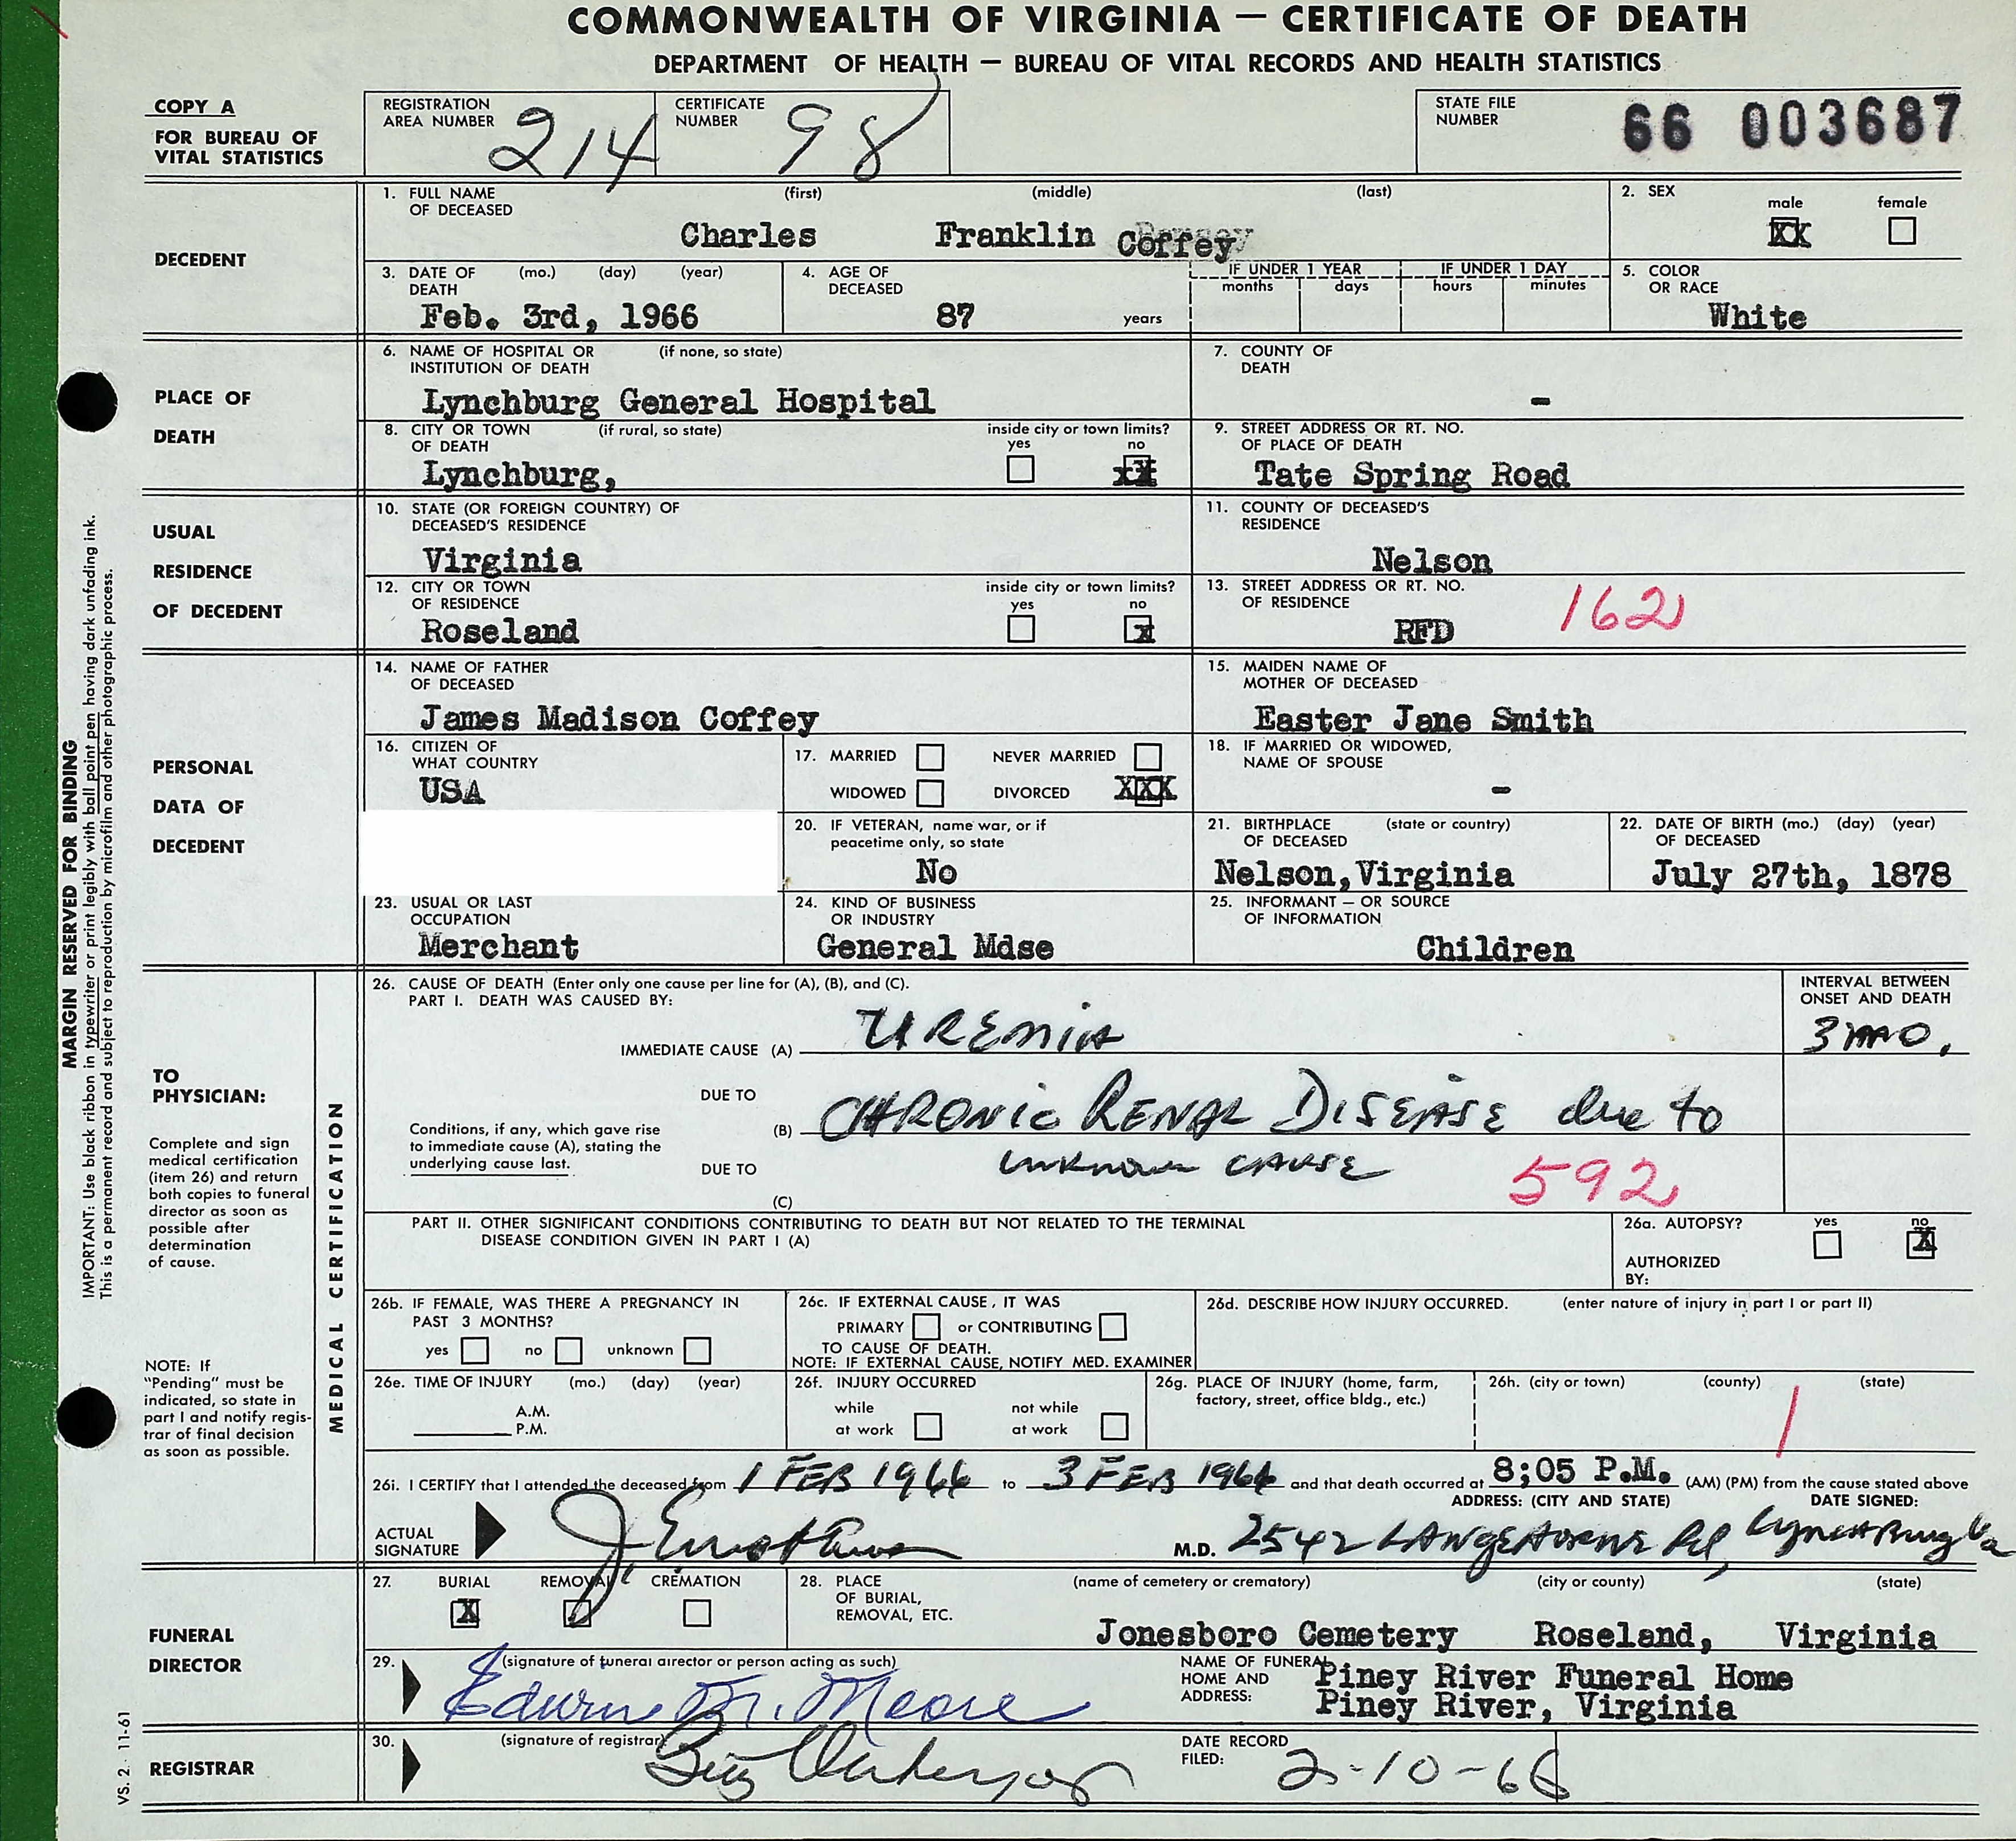 COMMONWEALTH OF VIRGINIA — CERTIFICATE OF DEATH
DEPARTMENT OF HEALTH — BUREAU OF VITAL RECORDS AND HEALTH STATISTICS
COPY A
FOR BUREAU OF
VITAL STATISTICS
REGISTRATION
AREA NUMBER
214
CERTIFICATE
NUMBER
98
STATE FILE
NUMBER
66 003687
DECEDENT
1. FULL NAME
OF DECEASED
(first) (middle) (last)
Charles Franklin Coffey
2. SEX
male female
XX
3. DATE OF (mo.) (day) (year)
DEATH
Feb. 3rd, 1966
4. AGE OF
DECEASED
87 years
IF UNDER 1 YEAR IF UNDER 1 DAY
months days hours minutes
5. COLOR
OR RACE
White
PLACE OF
DEATH
6. NAME OF HOSPITAL OR (if none, so state)
INSTITUTION OF DEATH
Lynchburg General Hospital
7. COUNTY OF
DEATH
-
8. CITY OR TOWN (if rural, so state) inside city or town limits?
OF DEATH yes no
Lynchburg, xX
9. STREET ADDRESS OR RT. NO.
OF PLACE OF DEATH
Tate Spring Road
USUAL
RESIDENCE
OF DECEDENT
10. STATE (OR FOREIGN COUNTRY) OF
DECEASED'S RESIDENCE
Virginia
11. COUNTY OF DECEASED'S
RESIDENCE
Nelson
12. CITY OR TOWN inside city or town limits?
OF RESIDENCE yes no
Roseland x
13. STREET ADDRESS OR RT. NO.
OF RESIDENCE
RFD 162
PERSONAL
DATA OF
DECEDENT
14. NAME OF FATHER
OF DECEASED
James Madison Coffey
15. MAIDEN NAME OF
MOTHER OF DECEASED
Easter Jane Smith
16. CITIZEN OF
WHAT COUNTRY
USA
17. MARRIED NEVER MARRIED
WIDOWED DIVORCED XXX
18. IF MARRIED OR WIDOWED,
NAME OF SPOUSE
-
20. IF VETERAN, name war, or if
peacetime only, so state
No
21. BIRTHPLACE (state or country)
OF DECEASED
Nelson,Virginia
22. DATE OF BIRTH (mo.) (day) (year)
OF DECEASED
July 27th, 1878
23. USUAL OR LAST
OCCUPATION
Merchant
24. KIND OF BUSINESS
OR INDUSTRY
General Mdse
25. INFORMANT — OR SOURCE
OF INFORMATION
Children
MARGIN RESERVED FOR BINDING
IMPORTANT: Use black ribbon in typewriter or print legibly with ball point pen having dark unfading ink.
This is a permanent record and subject to reproduction by microfilm and other photographic process.
TO
PHYSICIAN:
Complete and sign
medical certification
(item 26) and return
both copies to funeral
director as soon as
possible after
determination
of cause.
NOTE: If
"Pending" must be
indicated, so state in
part I and notify regis-
trar of final decision
as soon as possible.
MEDICAL CERTIFICATION
26. CAUSE OF DEATH (Enter only one cause per line for (A), (B), and (C).
PART I. DEATH WAS CAUSED BY:
INTERVAL BETWEEN
ONSET AND DEATH
IMMEDIATE CAUSE (A) UREMIA 3 mo.
DUE TO
Conditions, if any, which gave rise
to immediate cause (A), stating the
underlying cause last.
(B) CHRONIC RENAL DISEASE due to
DUE TO unknown CAUSE 592
(C)
PART II. OTHER SIGNIFICANT CONDITIONS CONTRIBUTING TO DEATH BUT NOT RELATED TO THE TERMINAL
DISEASE CONDITION GIVEN IN PART I (A)
26a. AUTOPSY? yes no
X
AUTHORIZED
BY:
26b. IF FEMALE, WAS THERE A PREGNANCY IN
PAST 3 MONTHS?
yes no unknown
26c. IF EXTERNAL CAUSE, IT WAS
PRIMARY or CONTRIBUTING
TO CAUSE OF DEATH.
NOTE: IF EXTERNAL CAUSE, NOTIFY MED. EXAMINER
26d. DESCRIBE HOW INJURY OCCURRED. (enter nature of injury in part I or part II)
26e. TIME OF INJURY (mo.) (day) (year)
A.M.
P.M.
26f. INJURY OCCURRED
while not while
at work at work
26g. PLACE OF INJURY (home, farm,
factory, street, office bldg., etc.)
26h. (city or town) (county) (state)
1
26i. I CERTIFY that I attended the deceased from 1 FEB 1966 to 3 FEB 1966 and that death occurred at 8;05 P.M. (AM) (PM) from the cause stated above
ADDRESS: (CITY AND STATE) DATE SIGNED:
ACTUAL
SIGNATURE
M.D. 2542 LANGEHORNE Rd, Lynchburg Va
FUNERAL
DIRECTOR
27. BURIAL REMOVAL CREMATION
X
28. PLACE
OF BURIAL,
REMOVAL, ETC.
(name of cemetery or crematory) (city or county) (state)
Jonesboro Cemetery Roseland, Virginia
29. (signature of funeral director or person acting as such)
Edwin M. Moore
NAME OF FUNERAL
HOME AND
ADDRESS:
Piney River Funeral Home
Piney River, Virginia
REGISTRAR
30. (signature of registrar)
DATE RECORD
FILED:
2-10-66
VS. 2. 11-61